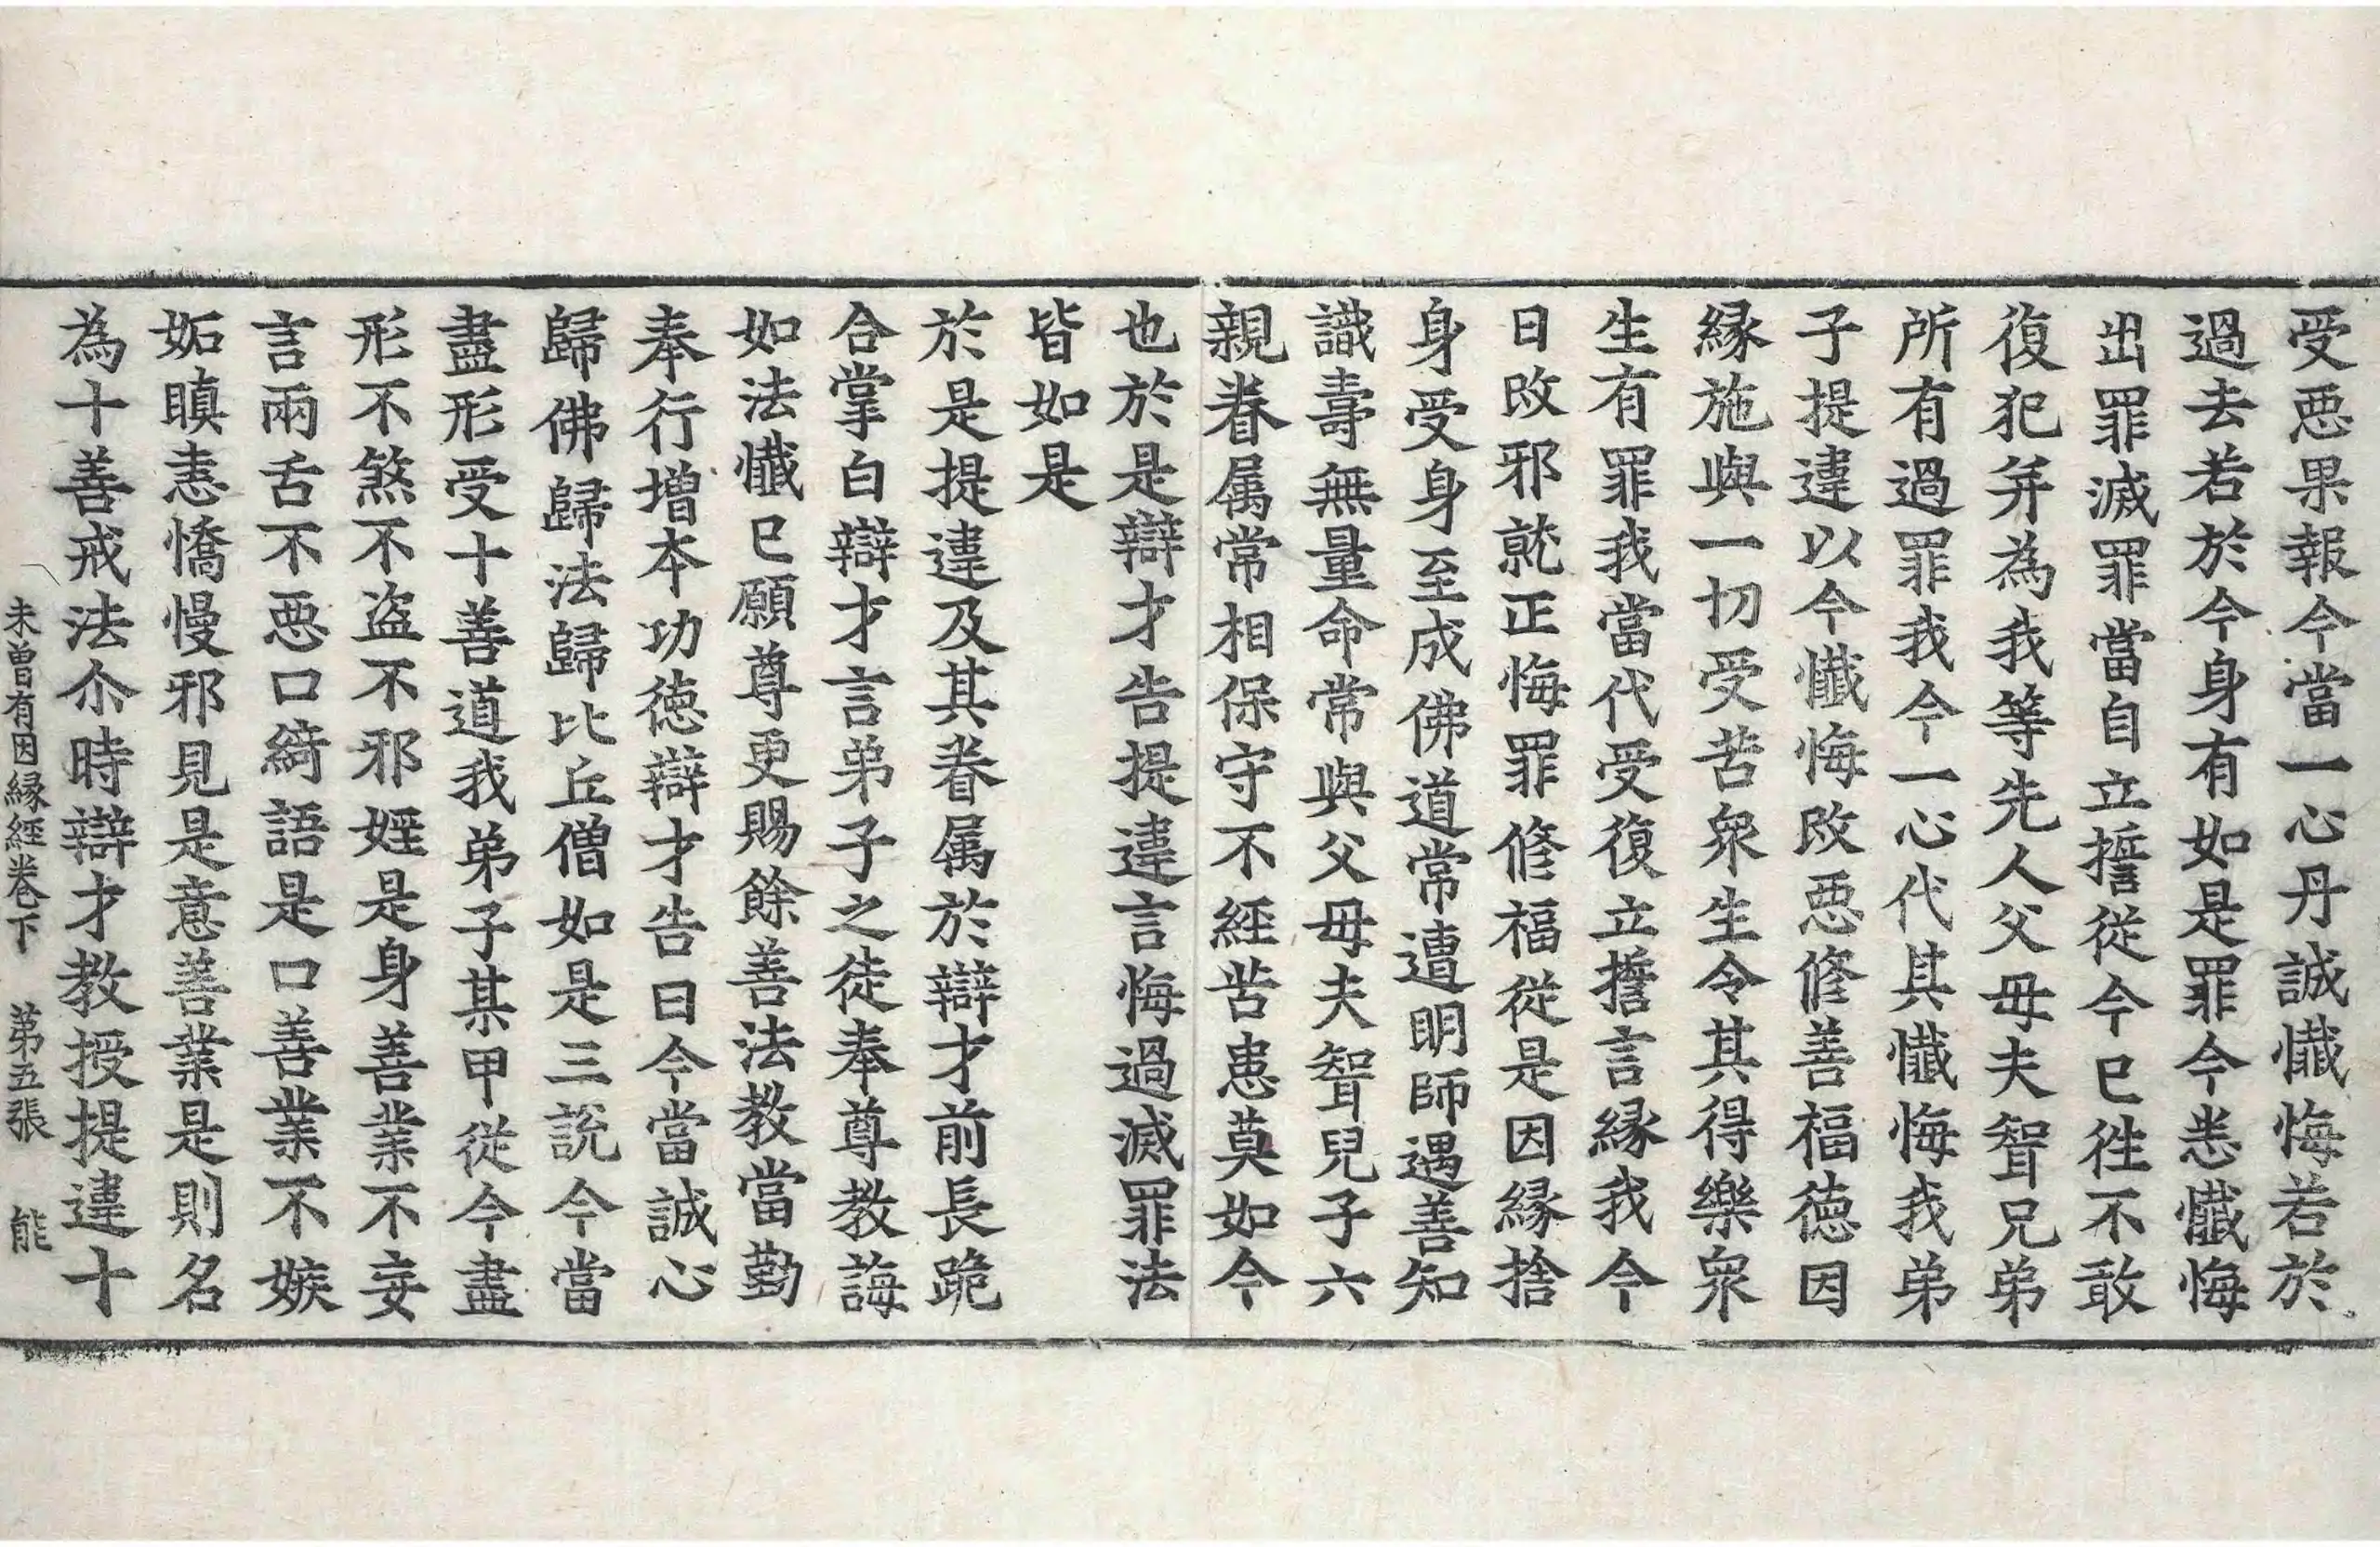 受惡果報今當一心丹誠懴悔若於
過去若於今身有如是罪今悉懴悔
出罪滅罪當自立誓從今已徃不敢
復犯并為我等先人父母夫聟兄弟
所有過罪我今一心代其懴悔我弟
子提違以今懴悔改惡修善福徳因
縁施與一切受苦衆生令其得樂衆
生有罪我當代受復立誓言縁我今
日改邪就正悔罪修福從是因縁捨
身受身至成佛道常遭明師遇善知
識壽無量命常與父母夫聟兒子六
親眷属常相保守不經苦患莫如今
也於是辯才告提違言悔過滅罪法
皆如是
於是提違及其眷属於辯才前長跪
合掌白辯才言弟子之徒奉尊教誨
如法懴已願尊更賜餘善法教當勤
奉行增本功徳辯才告曰今當誠心
歸佛歸法歸比丘僧如是三說今當
盡形受十善道我弟子某甲從今盡
形不煞不盗不邪婬是身善業不妄
言兩舌不惡口綺語是口善業不嫉
妬瞋恚憍慢邪見是意善業是則名
為十善戒法尒時辯才教授提違十
未曾有因縁經卷下　第五張　能